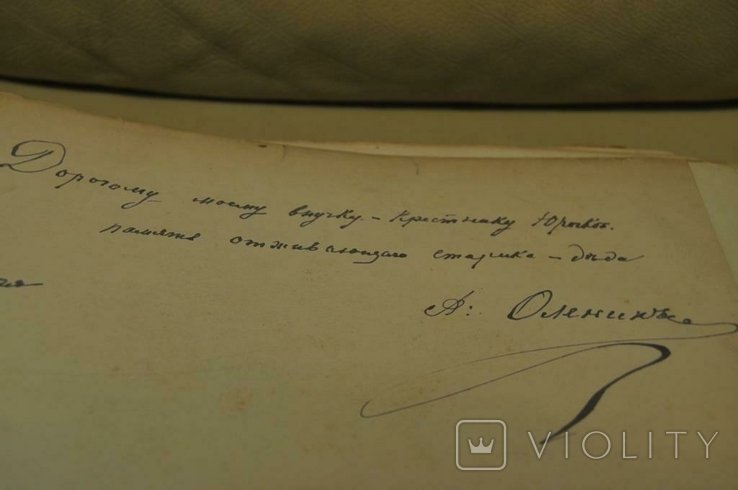 Дорогому моему внучку – крестнику
память отживающаго старика – дѣда
А: Оленинъ
VIOLITY